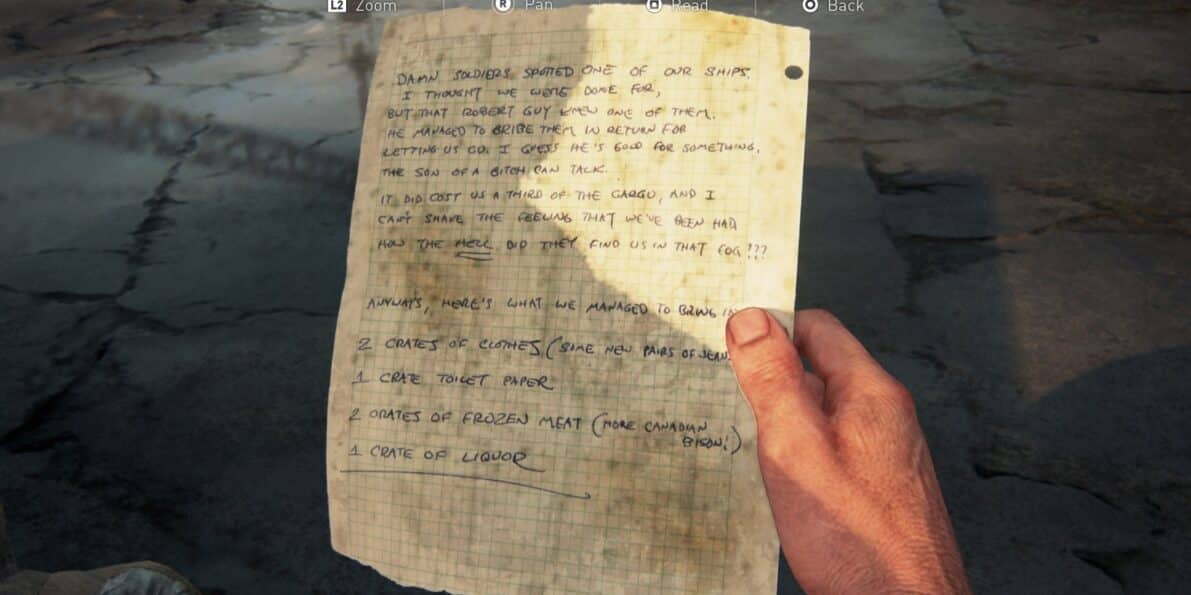 L2 Zoom R Pan Read Back
DAMN SOLDIERS SPOTTED ONE OF OUR SHIPS.
I THOUGHT WE WERE DONE FOR,
BUT THAT ROBERT GUY KNEW ONE OF THEM.
HE MANAGED TO BRIBE THEM IN RETURN FOR
LETTING US GO. I GUESS HE'S GOOD FOR SOMETHING.
THE SON OF A BITCH CAN TALK.
IT DID COST US A THIRD OF THE CARGO, AND I
CAN'T SHAKE THE FEELING THAT WE'VE BEEN HAD
HOW THE HELL DID THEY FIND US IN THAT FOG???
ANYWAYS, HERE'S WHAT WE MANAGED TO BRING
2 CRATES OF CLOTHES (SOME NEW PAIRS OF
1 CRATE TOILET PAPER
2 CRATES OF FROZEN MEAT (MORE CANADIAN
BISON!)
1 CRATE OF LIQUOR